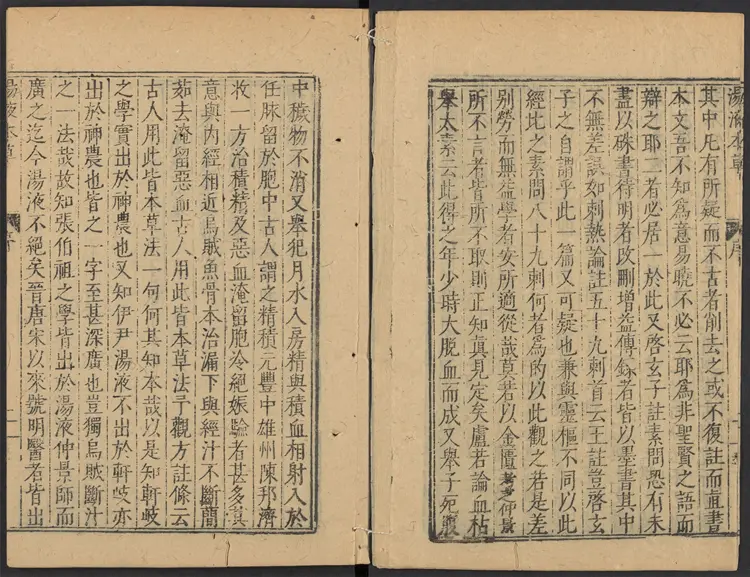 湯液本草 序
其中凡有所疑而不古者削去之或不復註而直書
本文吾不知為意易曉不必云耶為非聖賢之語而
辯之耶二者必居一於此又啓玄子註素問恐有未
盡以硃書待明者改刪增益傳錄者皆以墨書其中
不無差誤如刺熱論註五十九刺首云王註豈啓玄
子之自謂乎此一篇又可疑也兼與靈樞不同以此
經比之素問八十九刺何者為的以此觀之若是差
別勞而無益學者安所適從哉莫若以金匱仲景
所不言者皆所不取則正知真見定矣盧若論血枯
舉太素云此得之年少時大脫血而成又舉子死腹
中穢物不消又舉犯月水入房精與積血相射入於
任脉留於胞中古人謂之精積元豐中雄州陳邦濟
收一方治積精及惡血淹留胞冷絕娠驗者甚多其
意與內經相近烏賊魚骨本治漏下與經汁不斷䕡
茹去淹留惡血古人用此皆本草法予觀方註條云
古人用此皆本草法一何何其知本哉以是知軒岐
之學實出於神農也又知伊尹湯液不出於軒岐亦
出於神農也皆之一字至甚深廣也豈獨烏賊斷汁
之一法哉故知張伯祖之學皆出於湯液仲景師而
廣之迄今湯液不絕矣晉唐宋以來號明醫者皆出
湯液本草 序